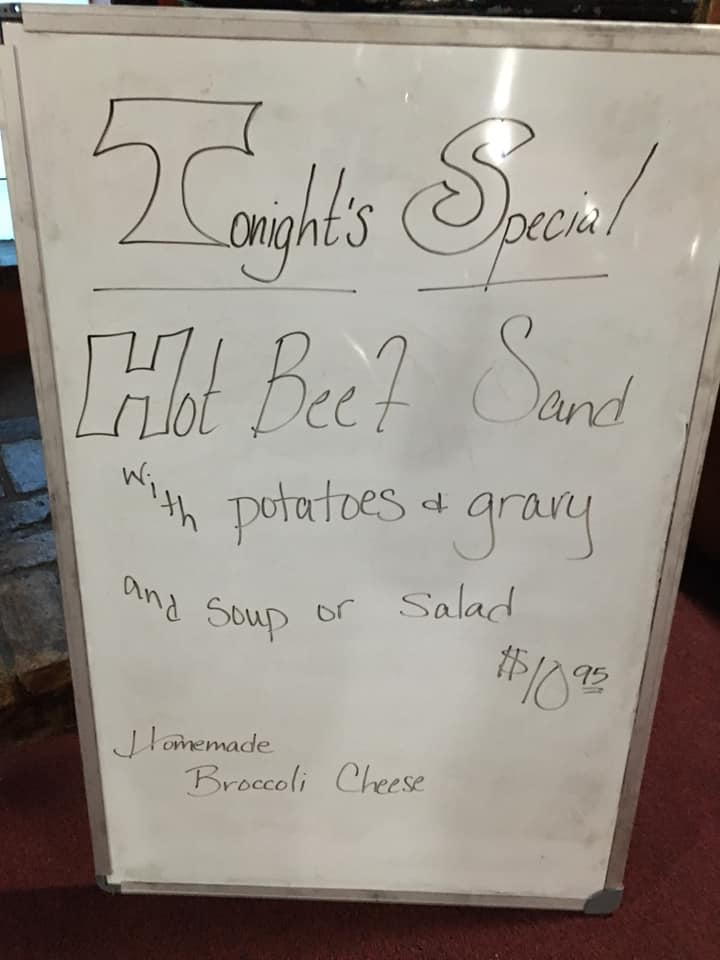 Tonight's Special
Hot Beef Sand
with potatoes & gravy
and soup or salad
$10.95
Homemade
Broccoli Cheese